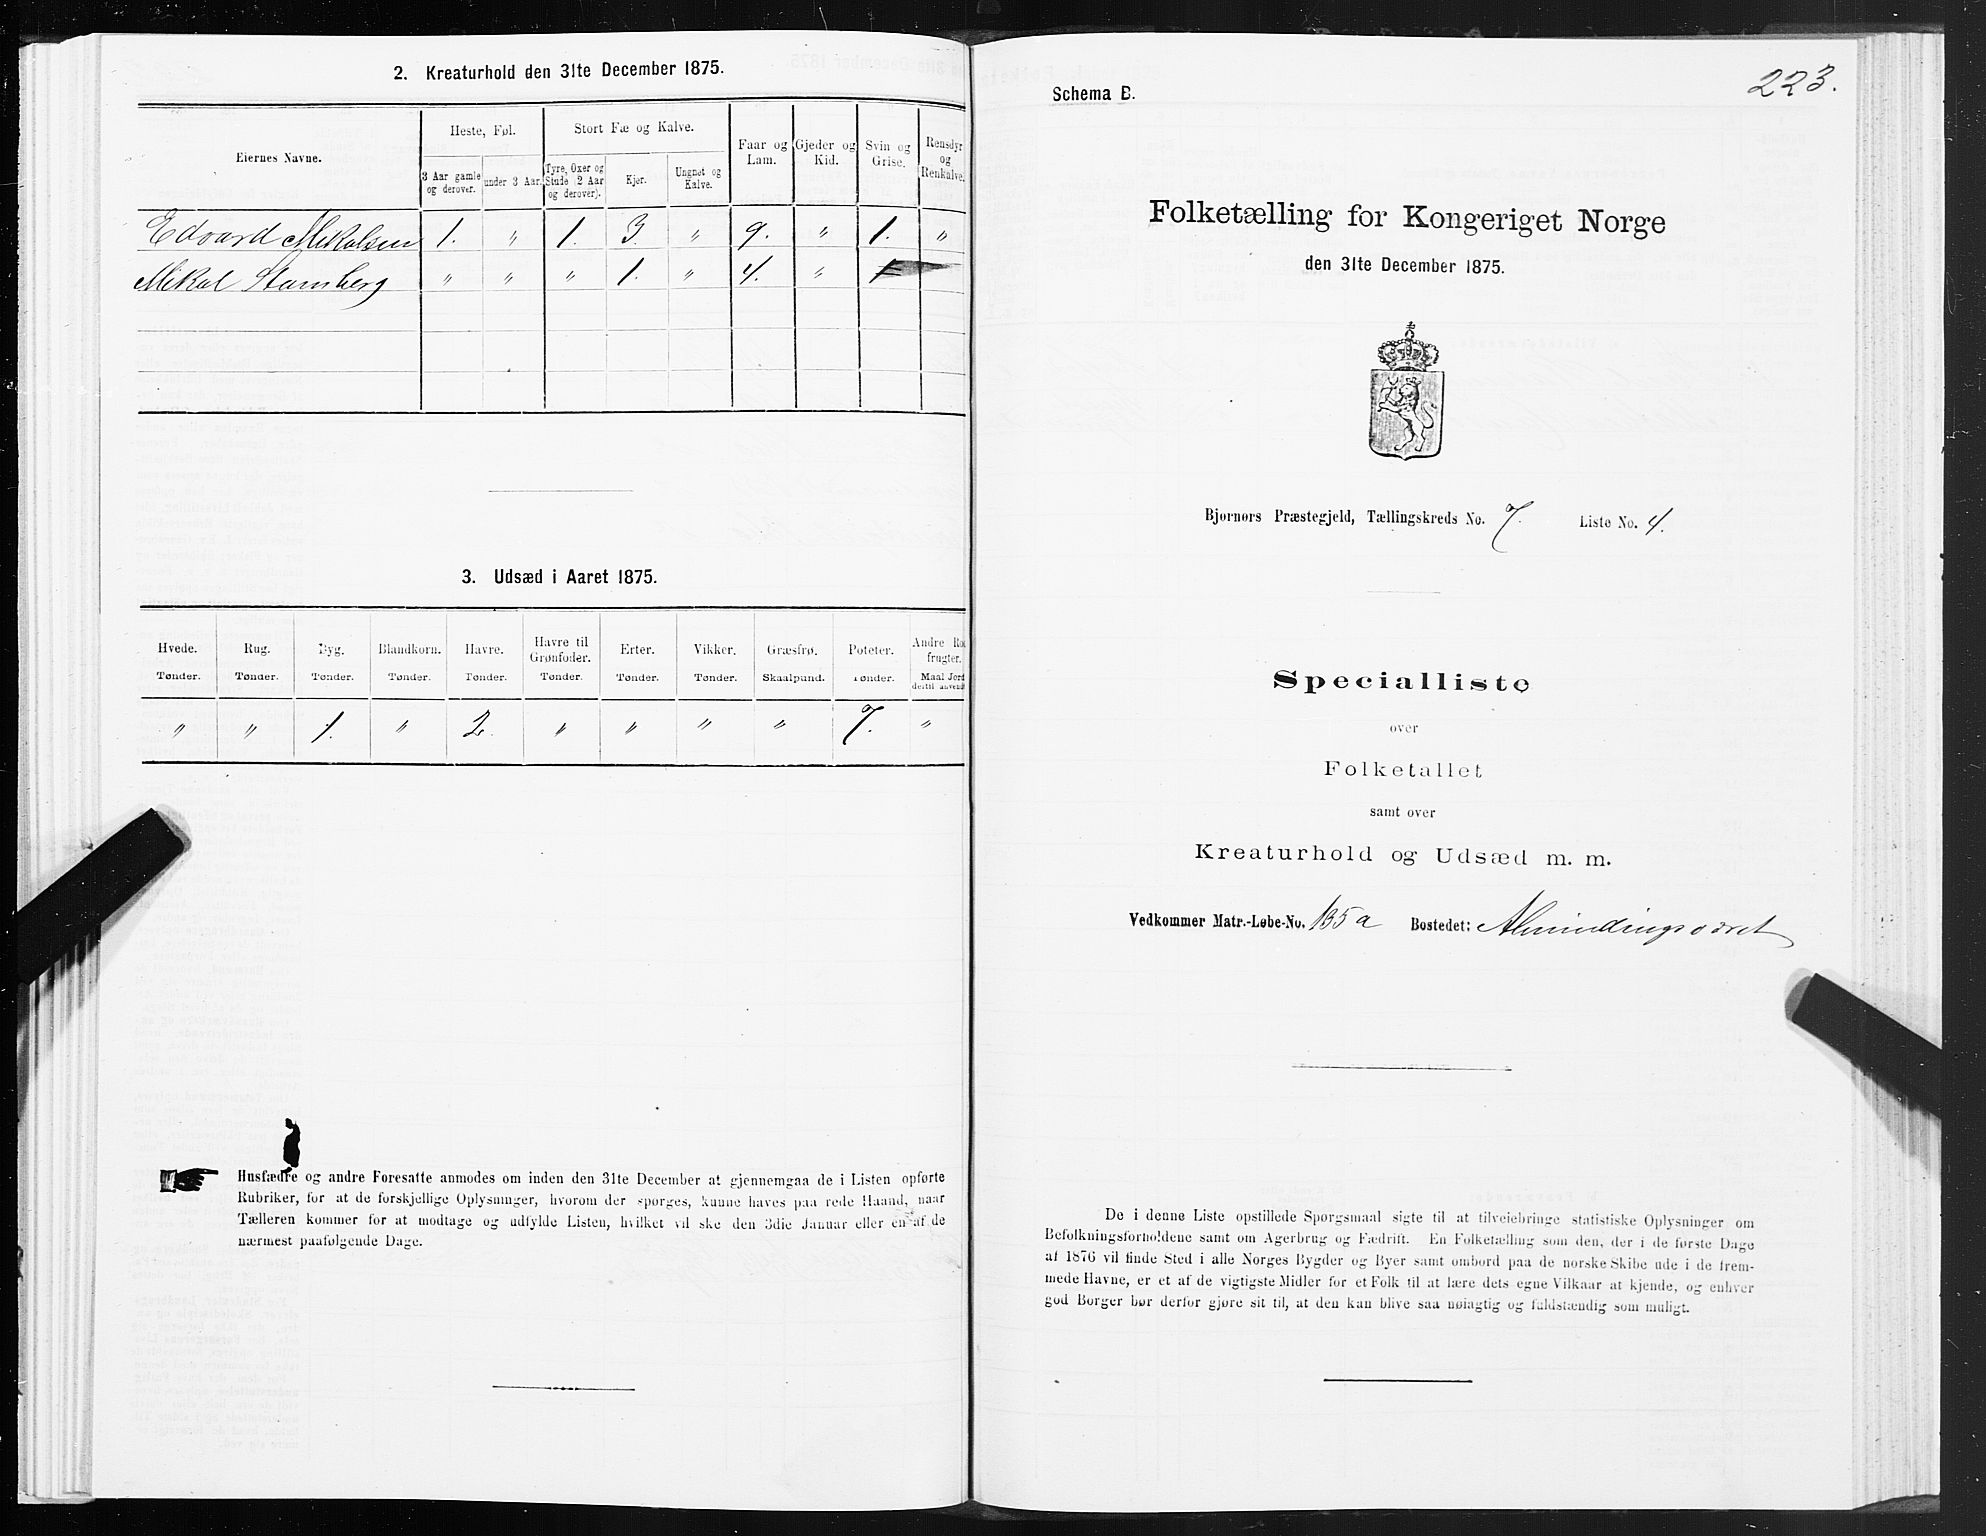 2. Kreaturhold den 31te December 1875.
Eiernes Navne.
Heste, Føl.
Stort Fæ og Kalve.
Faar og Lam.
Gjeder og Kid.
Svin og Grise.
Rensdyr og Renkalve.
3 Aar gamle og derover.
under 3 Aar.
Tyre, Oxer og Stude (2 Aar og derover).
Kjør.
Ungnøt og Kalve.
Edvard Mikalsen 1. " 1. 3. " 9. " 1. "
Mikal " " " 1. " 4. " 1
3. Udsæd i Aaret 1875.
Hvede. Rug. Byg. Blandkorn. Havre. Havre til Grønfoder. Erter. Vikker. Græsfrø. Poteter. Andre Rodfrugter.
Tønder. Tønder. Tønder. Tønder. Tønder. Tønder. Tønder. Tønder. Skaalpund. Tønder. Maal Jord dertil anvendt
" " 1. " 2. " " " " 7. "
Husfædre og andre Foresatte anmodes om inden den 31te December at gjennemgaa de i Listen opførte
Rubriker, for at de forskjellige Oplysninger, hvorom der spørges, kunne haves paa rede Haand, naar
Tælleren kommer for at modtage og udfylde Listen, hvilket vil ske den 3die Januar eller en af de
nærmest paafølgende Dage.
223.
Schema B.
Folketælling for Kongeriget Norge
den 31te December 1875.
Bjørnørs Præstegjeld, Tællingskreds No. 7. Liste No. 4.
Specialliste
over
Folketallet
samt over
Kreaturhold og Udsæd m. m.
Vedkommer Matr.-Løbe-No. 135a Bostedet: Almindingsværet
De i denne Liste opstillede Spørgsmaal sigte til at tilveiebringe statistiske Oplysninger om
Befolkningsforholdene samt om Agerbrug og Fædrift. En Folketælling som den, der i de første Dage
af 1876 vil finde Sted i alle Norges Bygder og Byer samt ombord paa de norske Skibe ude i de frem-
mede Havne, er et af de vigtigste Midler for et Folk til at lære dets egne Vilkaar at kjende, og enhver
god Borger bør derfor gjøre sit til, at den kan blive saa nøiagtig og fuldstændig som muligt.